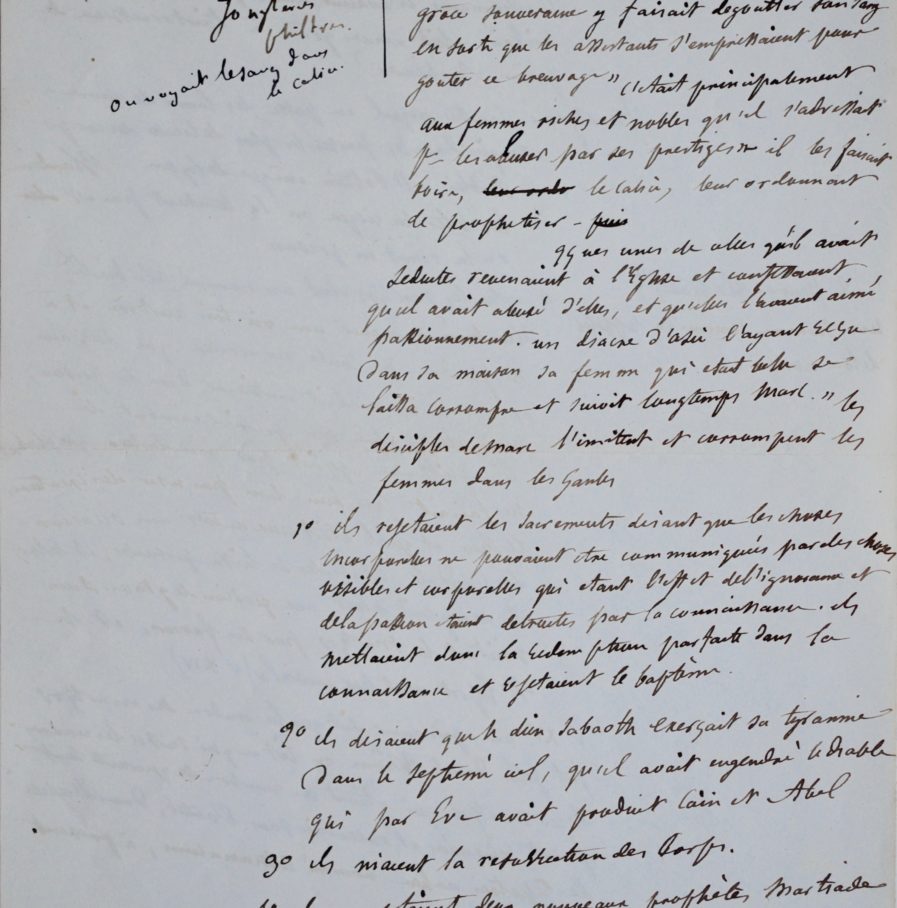 Jongleries
philtres.
on voyait le sang dans
le calice.
grâce souveraine y faisait degoutter son sang
en sorte que les assistants s'empressaient pour
gouter ce breuvage" c'était principalement
aux femmes riches et nobles qu'il s'adressait
pr les abuser par ses prestiges il les faisait
boire, leur ordo le calice, leur ordonnant
de prophetiser - puis
qques unes de celles qu'il avait
seduites revenaient à l'Eglise et confessaient
qu'il avait abusé d'elles, et qu'elles l'avaient aimé
passionnement. un diacre d'asie l'ayant reçu
dans sa maison sa femme qui etant belle se
laissa corrompre et suivit longtemps Marc." les
disciples de Marc l'imitent et corrompent les
femmes dans les Gaules
1° ils rejetaient les sacrements disant que les choses
incorporelles ne pouvaient etre communiquées par des choses
visibles et corporelles qui etant l'effet de l'ignorance et
de la passion etaient detruites par la connaissance. ils
mettaient donc la redemption parfaite dans la
connaissance et rejetaient le baptême.
2° ils disaient que le dieu Sabaoth exerçait sa tyrannie
dans le septieme ciel, qu'il avait engendré le diable
qui par Eve avait produit Cain et Abel
3° ils niaient la resurrection des Corps.
deux nouveaux prophètes Martiade